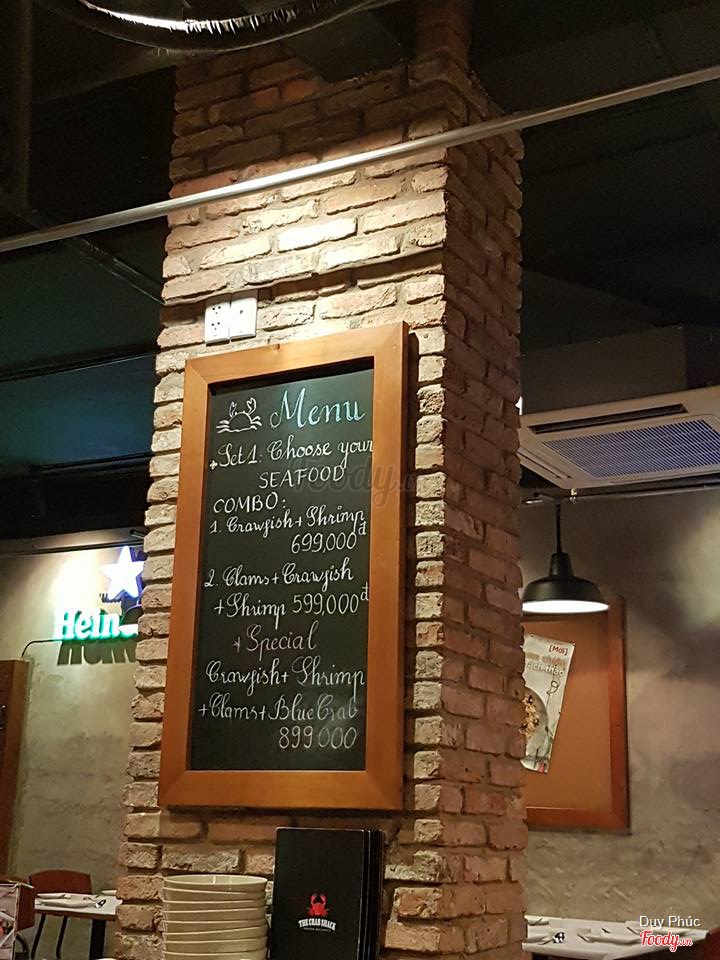 Menu
+Set 1: Choose your
SEAFOOD
COMBO:
1. Crawfish + Shrimp
699,000đ
2. Clams + Crawfish
+ Shrimp 599,000đ
* Special
Crawfish + Shrimp
+ Clams + Blue Crab
899 000
Hein
[Mới]
THE CRAB SHACK
Foody.vn
Duy Phúc
Foody.vn